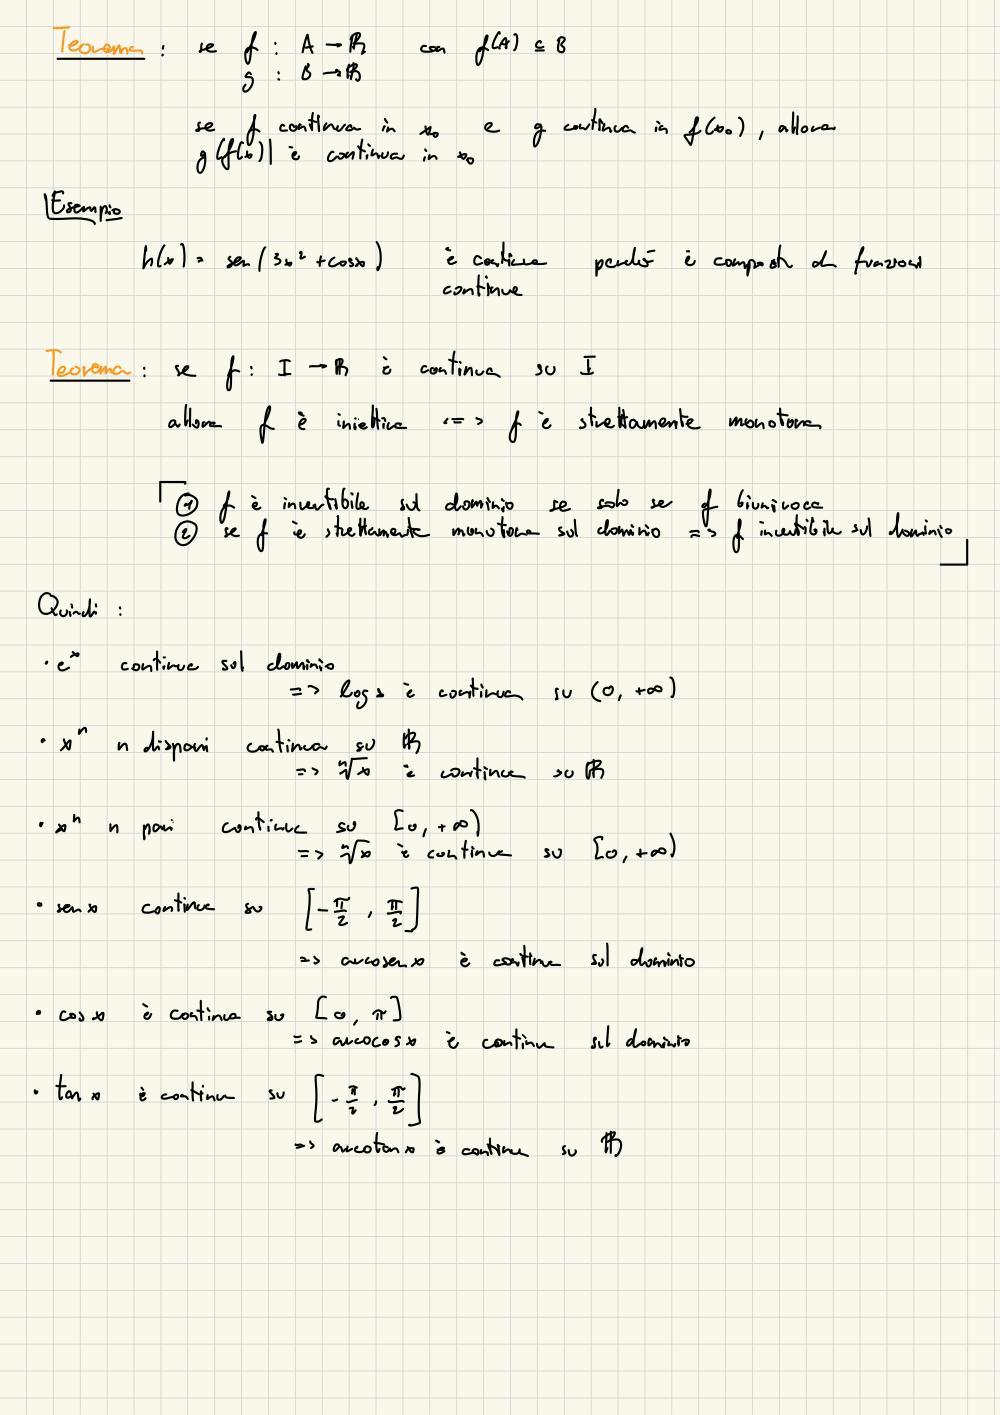 Teorema : se f : A → ℝ con f(A) ⊆ B
g : B → ℝ
se f continua in x₀ e g continua in f(x₀), allora
g(f(x)) è continua in x₀
Esempio
h(x) = sen(3x² + cosx) è continua perché è composta da funzioni
continue
Teorema : se f : I → ℝ è continua su I
allora f è iniettiva <=> f è strettamente monotona
① f è invertibile sul dominio se solo se f biunivoca
② se f è strettamente monotona sul dominio => f invertibile sul dominio
Quindi :
• eˣ continua sul dominio
=> log x è continua su (0, +∞)
• xⁿ n dispari continua su ℝ
=> ⁿ√x è continua su ℝ
• xⁿ n pari continua su [0, +∞)
=> ⁿ√x è continua su [0, +∞)
• sen x continua su [-π/2 , π/2]
=> arcosen x è continua sul dominio
• cos x è continua su [0, π]
=> arcocos x è continua sul dominio
• tan x è continua su [-π/2 , π/2]
=> arcotan x è continua su ℝ